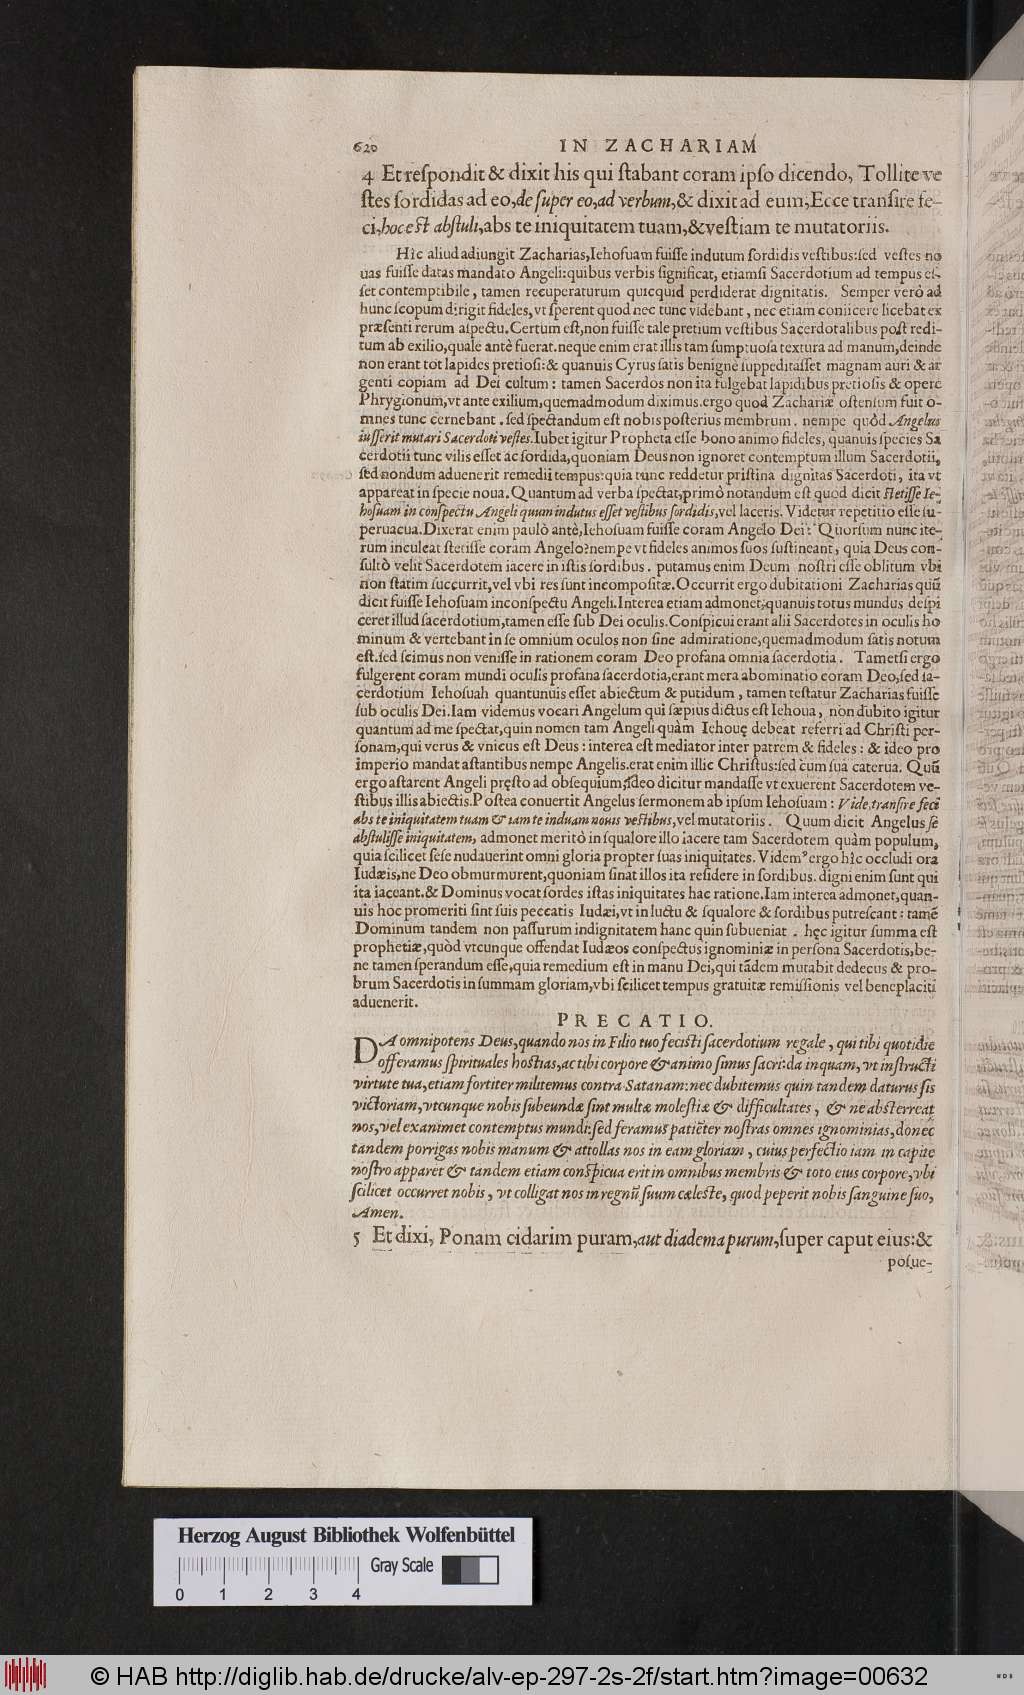 620 IN ZACHARIAM
4 Et reſpondit & dixit his qui ſtabant coram ipſo dicendo, Tollite ve
ſtes ſordidas ad eo, de ſuper eo, ad verbum, & dixit ad eum, Ecce tranſire fe-
ci, hoc eſt abſtuli, abs te iniquitatem tuam, & veſtiam te mutatoriis.
Hîc aliud adiungit Zacharias, Iehoſuam fuiſſe indutum ſordidis veſtibus: ſed veſtes no
uas fuiſſe datas mandato Angeli: quibus verbis ſignificat, etiamſi Sacerdotium ad tempus eſ-
ſet contemptibile, tamen recuperaturum quicquid perdiderat dignitatis. Semper verò ad
hunc ſcopum dirigit fideles, vt ſperent quod nec tunc videbant, nec etiam coniicere licebat ex
præſenti rerum aſpectu. Certum eſt, non fuiſſe tale pretium veſtibus Sacerdotalibus poſt redi-
tum ab exilio, quale antè fuerat. neque enim erat illis tam ſumptuoſa textura ad manum, deinde
non erant tot lapides pretioſi: & quanuis Cyrus ſatis benignè ſuppeditaſſet magnam auri & ar
genti copiam ad Dei cultum: tamen Sacerdos non ita fulgebat lapidibus pretioſis & opere
Phrygionum, vt ante exilium, quemadmodum diximus. ergo quod Zachariæ oſtenſum fuit o-
mnes tunc cernebant. ſed ſpectandum eſt nobis poſterius membrum. nempe quòd Angelus
iuſſerit mutari Sacerdoti veſtes. Iubet igitur Propheta eſſe bono animo fideles, quanuis ſpecies Sa
cerdotii tunc vilis eſſet ac ſordida, quoniam Deus non ignoret contemptum illum Sacerdotii,
ſed nondum aduenerit remedii tempus: quia tunc reddetur priſtina dignitas Sacerdoti, ita vt
appareat in ſpecie noua. Quantum ad verba ſpectat, primò notandum eſt quod dicit ſtetiſſe Ie-
hoſuam in conſpectu Angeli quum indutus eſſet veſtibus ſordidis, vel laceris. Videtur repetitio eſſe ſu-
peruacua. Dixerat enim paulò antè, Iehoſuam fuiſſe coram Angelo Dei: Quorſum nunc ite-
rum inculcat ſtetiſſe coram Angelo? nempe vt fideles animos ſuos ſuſtineant, quia Deus con-
ſultò velit Sacerdotem iacere in iſtis ſordibus. putamus enim Deum noſtri eſſe oblitum vbi
non ſtatim ſuccurrit, vel vbi res ſunt incompoſitæ. Occurrit ergo dubitationi Zacharias quũ
dicit fuiſſe Iehoſuam in conſpectu Angeli. Interea etiam admonet, quanuis totus mundus deſpi
ceret illud ſacerdotium, tamen eſſe ſub Dei oculis. Conſpicui erant alii Sacerdotes in oculis ho
minum & vertebant in ſe omnium oculos non ſine admiratione, quemadmodum ſatis notum
eſt. ſed ſcimus non veniſſe in rationem coram Deo profana omnia ſacerdotia. Tametſi ergo
fulgerent coram mundi oculis profana ſacerdotia, erant mera abominatio coram Deo, ſed ſa-
cerdotium Iehoſuah quantunuis eſſet abiectum & putidum, tamen teſtatur Zacharias fuiſſe
ſub oculis Dei. Iam videmus vocari Angelum qui ſæpius dictus eſt Iehoua, non dubito igitur
quantum ad me ſpectat, quin nomen tam Angeli quàm Iehouę debeat referri ad Chriſti per-
ſonam, qui verus & vnicus eſt Deus: interea eſt mediator inter patrem & fideles: & ideo pro
imperio mandat aſtantibus nempe Angelis. erat enim illic Chriſtus: ſed cum ſua caterua. Quũ
ergo aſtarent Angeli pręſto ad obſequium, ideo dicitur mandaſſe vt exuerent Sacerdotem ve-
ſtibus illis abiectis. Poſtea conuertit Angelus ſermonem ab ipſum Iehoſuam: Vide, tranſire feci
abs te iniquitatem tuam & iam te induam nouis veſtibus, vel mutatoriis. Quum dicit Angelus ſe
abſtuliſſe iniquitatem, admonet meritò in ſqualore illo iacere tam Sacerdotem quàm populum,
quia ſcilicet ſeſe nudauerint omni gloria propter ſuas iniquitates. Videmꝰ ergo hîc occludi ora
Iudæis, ne Deo obmurmurent, quoniam ſinat illos ita reſidere in ſordibus. digni enim ſunt qui
ita iaceant. & Dominus vocat ſordes iſtas iniquitates hac ratione. Iam interea admonet, quan-
uis hoc promeriti ſint ſuis peccatis Iudæi, vt in luctu & ſqualore & ſordibus putreſcant: tamẽ
Dominum tandem non paſſurum indignitatem hanc quin ſubueniat. hęc igitur ſumma eſt
prophetiæ, quòd vtcunque offendat Iudæos conſpectus ignominiæ in perſona Sacerdotis, be-
ne tamen ſperandum eſſe, quia remedium eſt in manu Dei, qui tãdem mutabit dedecus & pro-
brum Sacerdotis in ſummam gloriam, vbi ſcilicet tempus gratuitæ remiſſionis vel beneplaciti
aduenerit.
PRECATIO.
DA omnipotens Deus, quando nos in Filio tuo feciſti ſacerdotium regale, qui tibi quotidie
offeramus ſpirituales hoſtias, ac tibi corpore & animo ſimus ſacri: da inquam, vt inſtructi
virtute tua, etiam fortiter militemus contra Satanam: nec dubitemus quin tandem daturus ſis
victoriam, vtcunque nobis ſubeundæ ſint multæ moleſtiæ & difficultates, & ne abſterreat
nos, vel exanimet contemptus mundi: ſed feramus patiẽter noſtras omnes ignominias, donec
tandem porrigas nobis manum & attollas nos in eam gloriam, cuius perfectio iam in capite
noſtro apparet & tandem etiam conſpicua erit in omnibus membris & toto eius corpore, vbi
ſcilicet occurret nobis, vt colligat nos in regnũ ſuum cæleſte, quod peperit nobis ſanguine ſuo,
Amen.
5 Et dixi, Ponam cidarim puram, aut diadema purum, ſuper caput eius: &
poſue-
Herzog August Bibliothek Wolfenbüttel
Gray Scale
0 1 2 3 4
© HAB http://diglib.hab.de/drucke/alv-ep-297-2s-2f/start.htm?image=00632